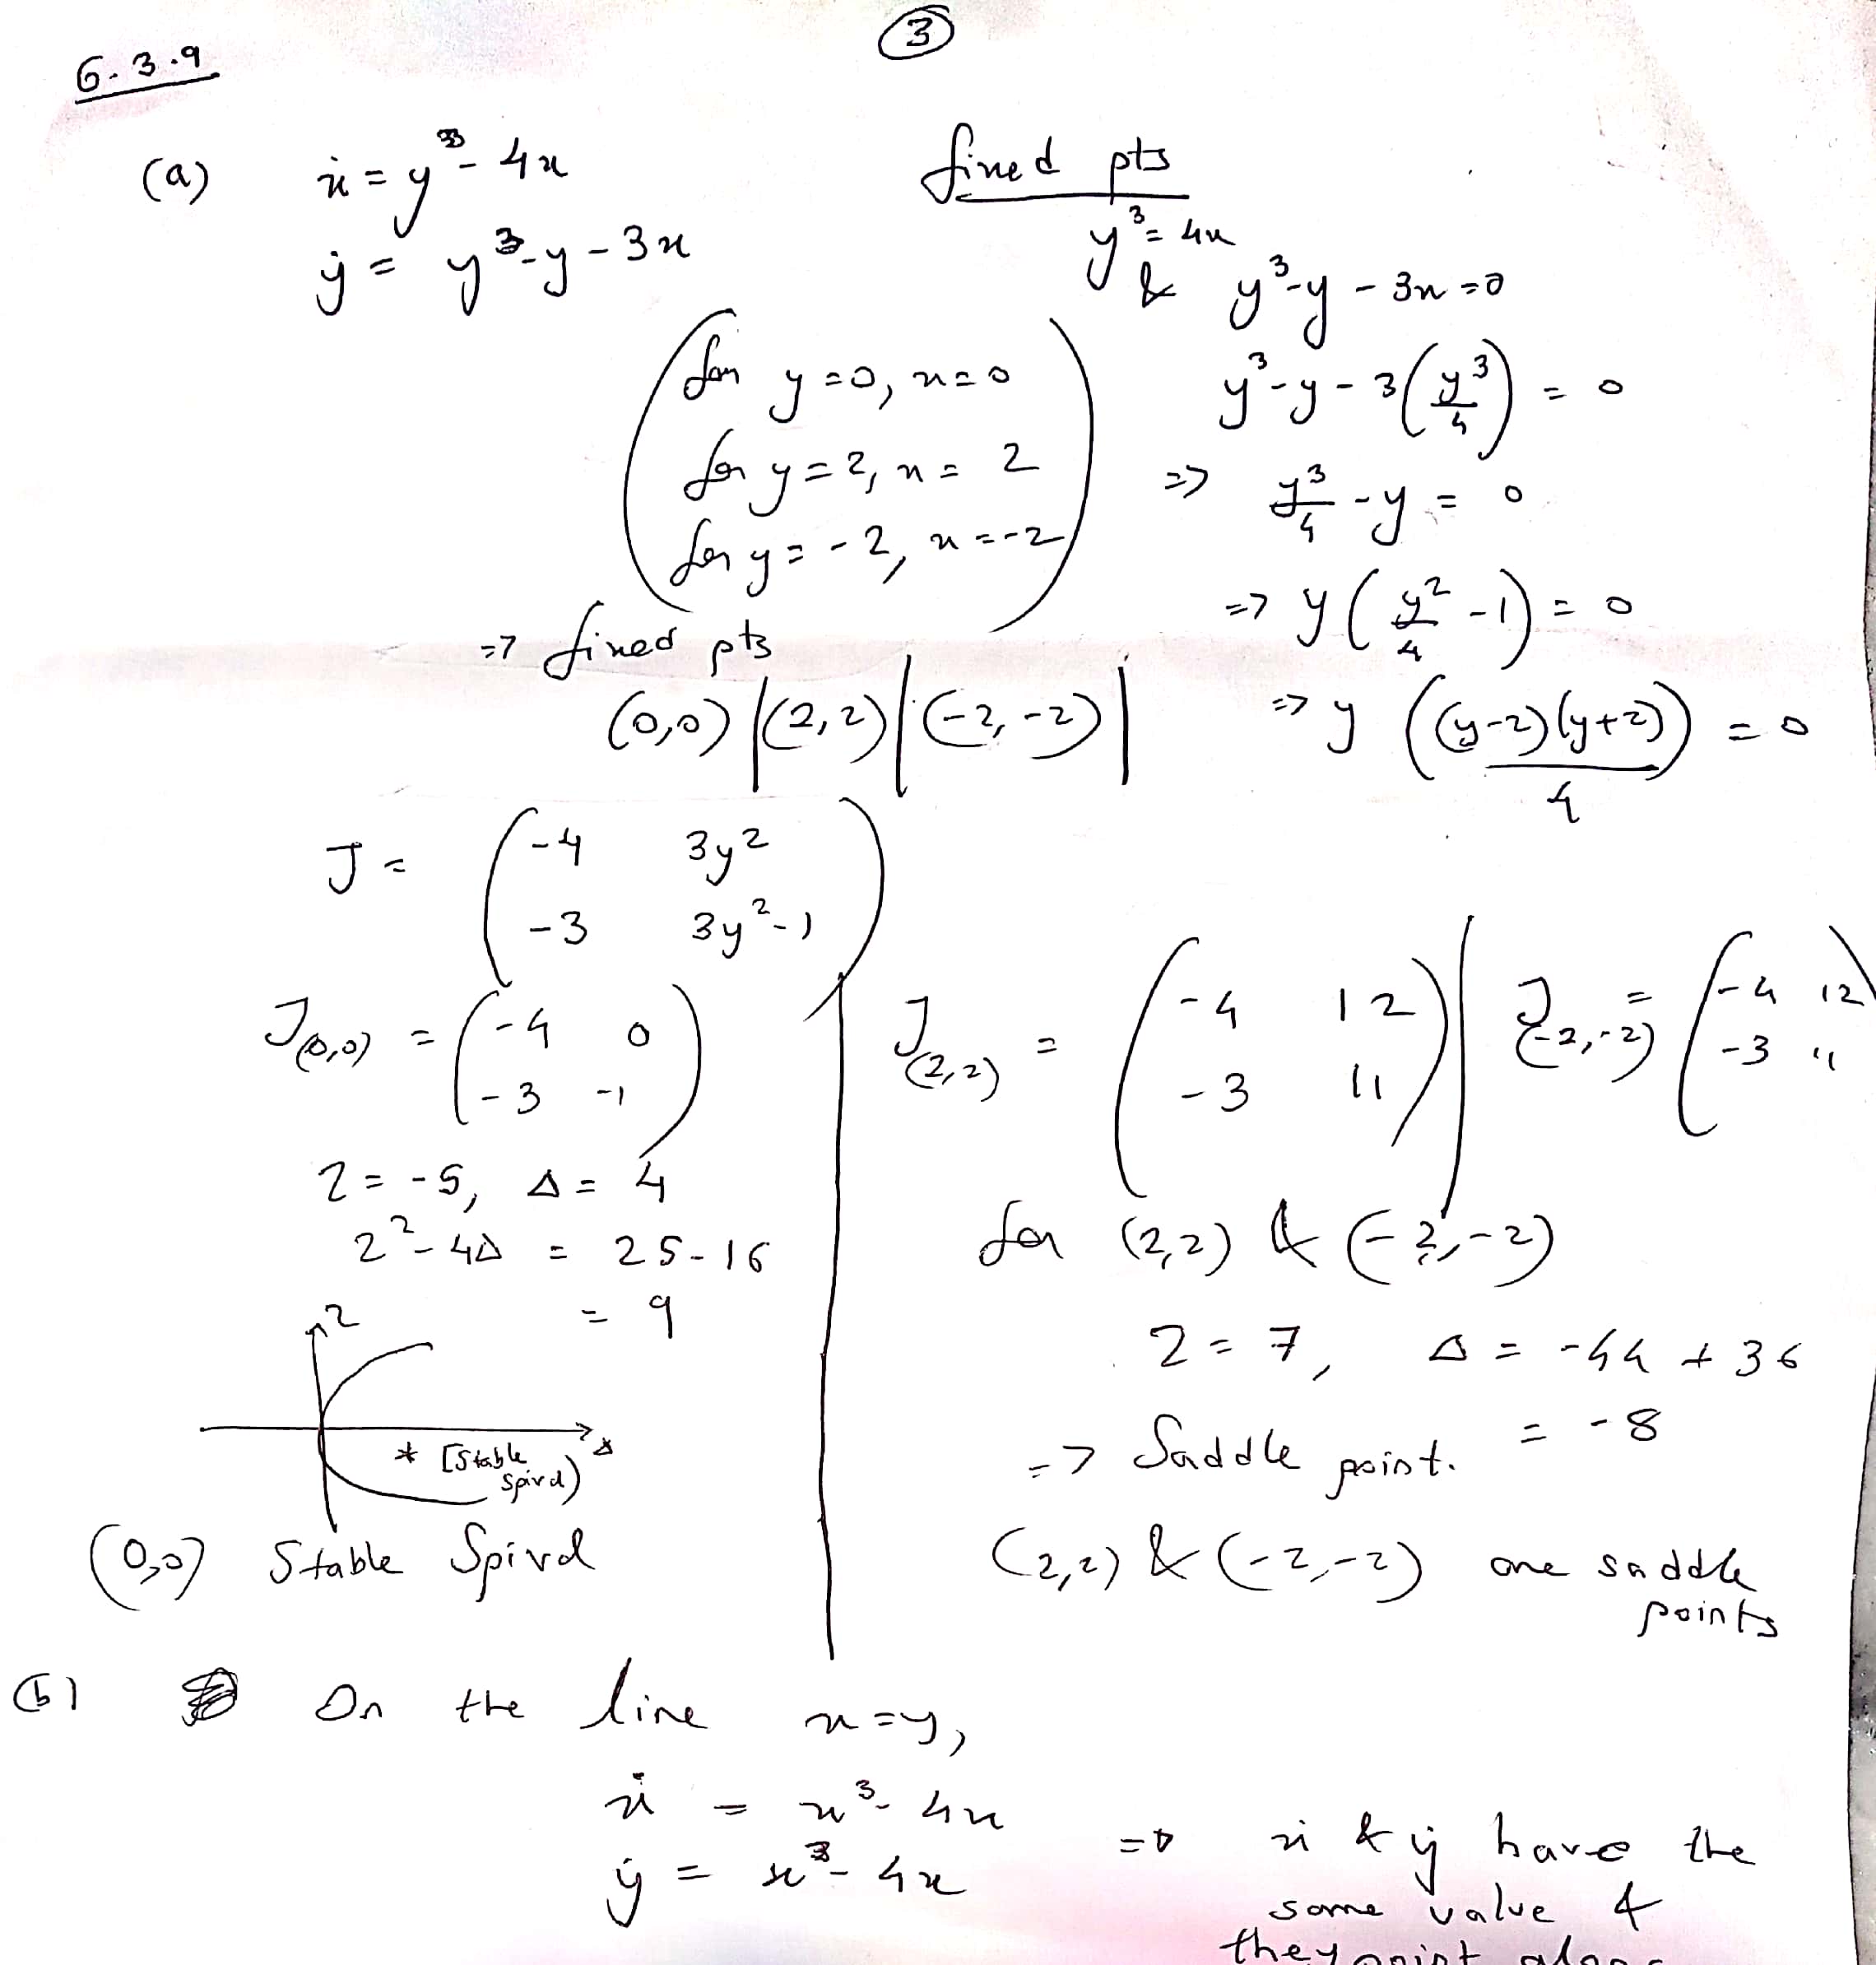 3
6.3.9
(a) ẋ = y³ - 4x
ẏ = y³ - y - 3x
fixed pts
y³ = 4x
& y³ - y - 3x = 0
y³ - y - 3(y³/4) = 0
=> y³/4 - y = 0
=> y(y²/4 - 1) = 0
=> y((y-2)(y+2)/4) = 0
(for y = 0, x = 0
for y = 2, x = 2
for y = -2, x = -2)
=> fixed pts
(0,0) | (2,2) | (-2,-2) |
J = (-4 3y²
-3 3y²-1)
J(0,0) = (-4 0
-3 -1)
τ = -5, Δ = 4
τ² - 4Δ = 25 - 16
= 9
τ
Δ
* [Stable
Spiral)
(0,0) Stable Spiral
J(2,2) = (-4 12
-3 11)
J(-2,-2) = (-4 12
-3 11
for (2,2) & (-2,-2)
τ = 7, Δ = -44 + 36
= -8
=> Saddle point.
(2,2) & (-2,-2) are saddle
points
(b) On the line x = y,
ẋ = x³ - 4x
ẏ = x³ - 4x
=> ẋ & ẏ have the
same value &
they point along